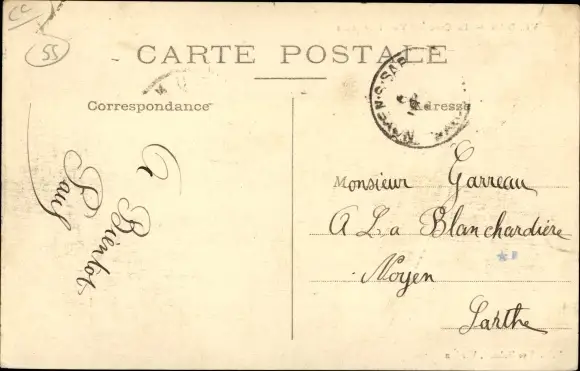 CC
55
CARTE POSTALE
Correspondance
Adresse
NOYEN-S-SAR
A Bientot
Paul
Monsieur Garreau
A La Blanchardière
Noyen
Sarthe